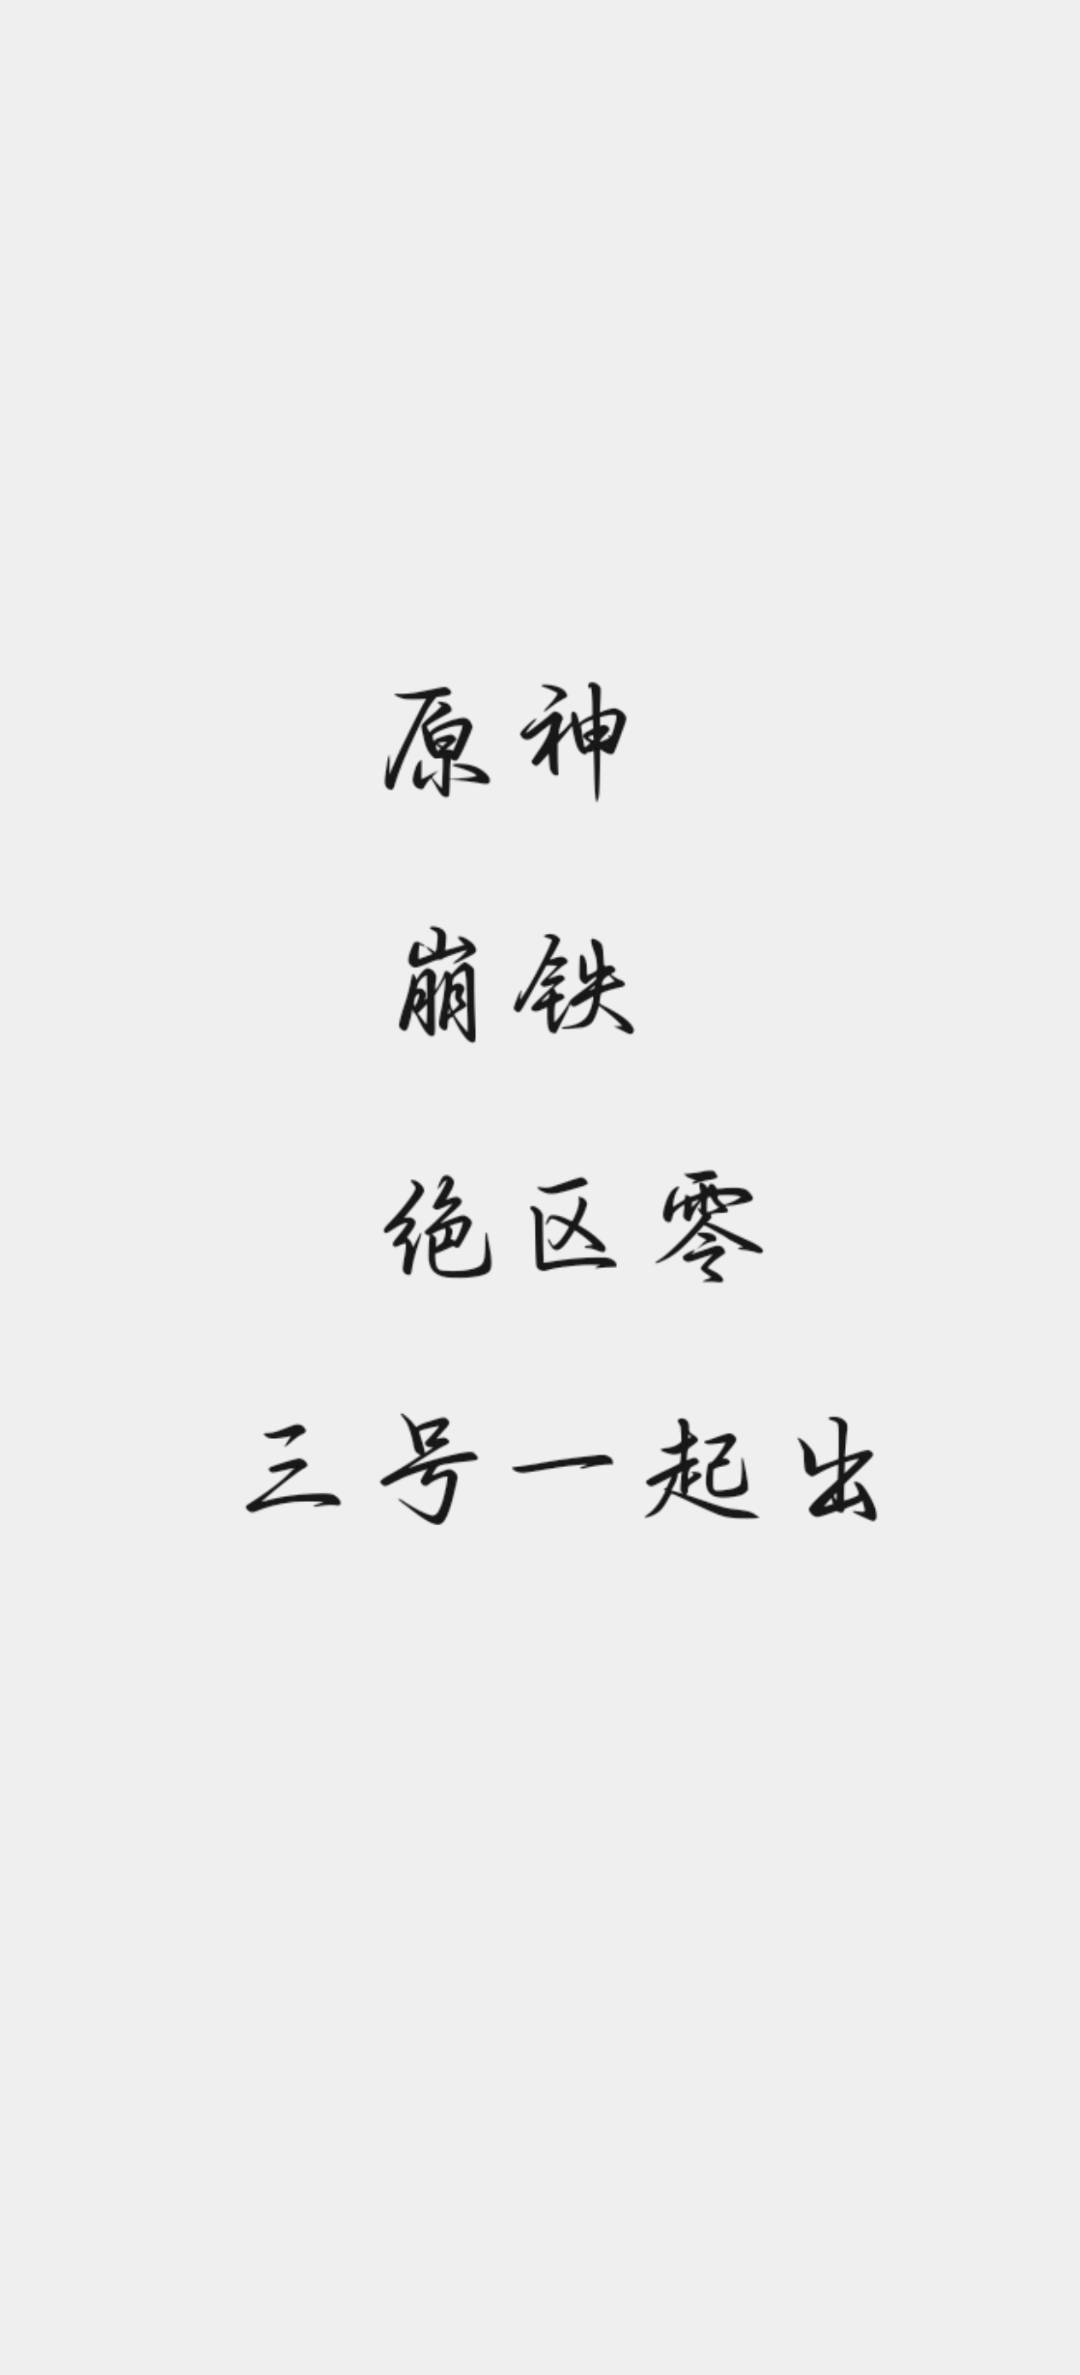 原神
崩铁
绝区零
三号一起出